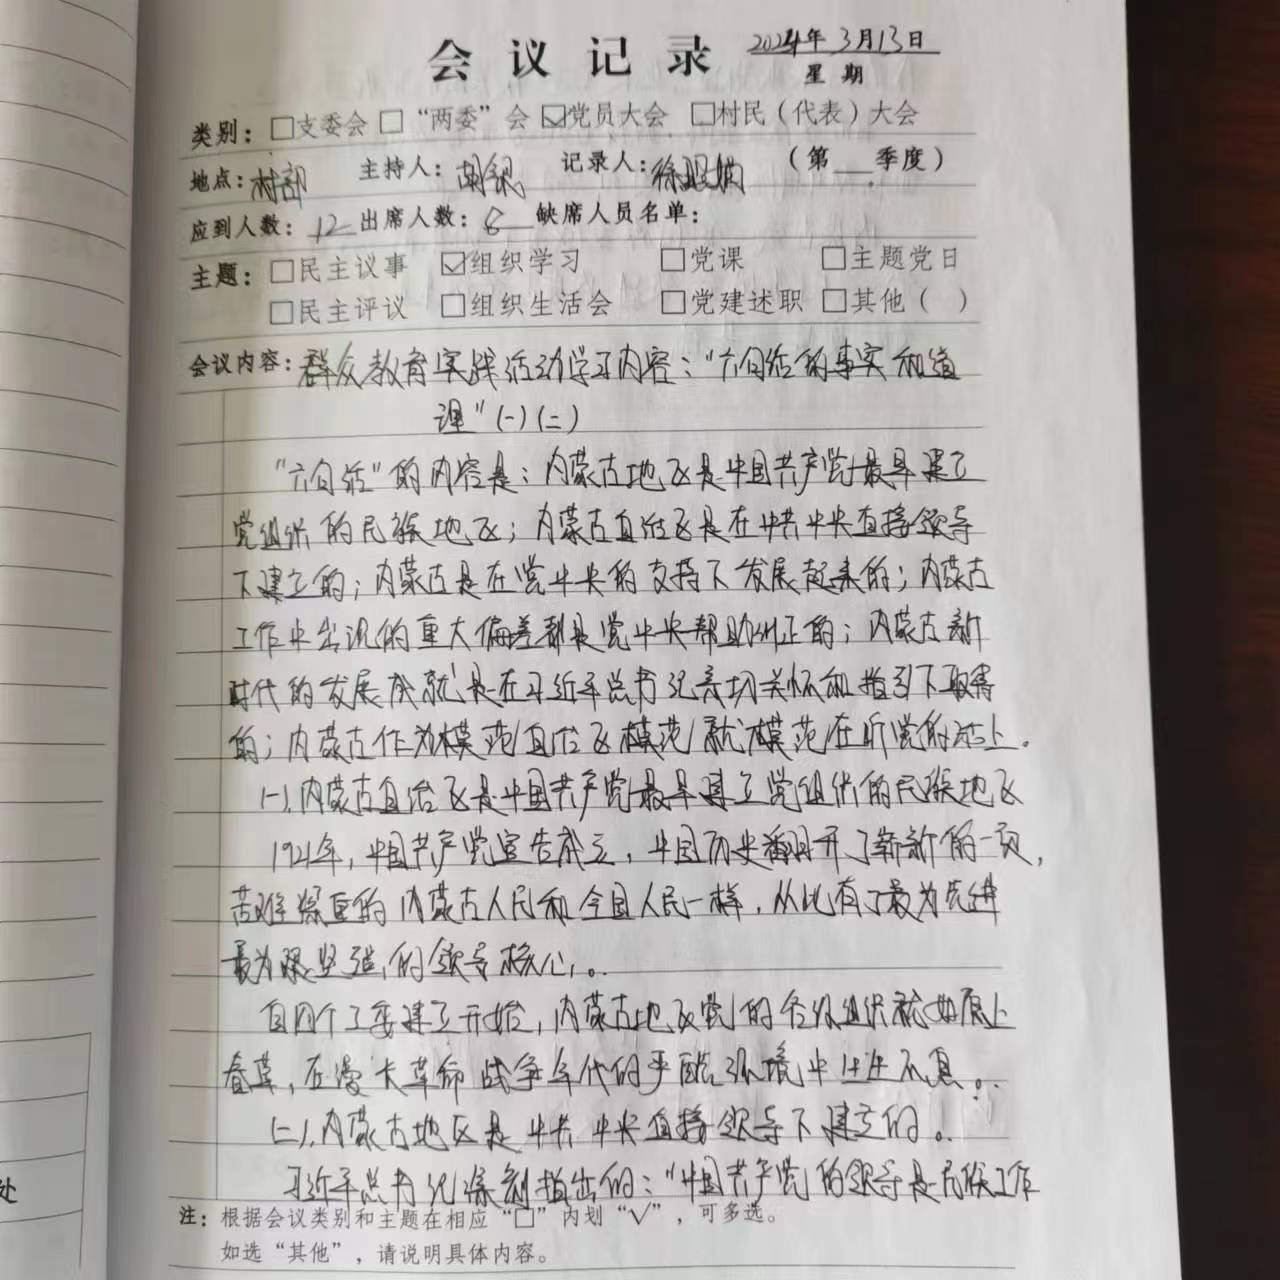 会议记录 2024年3月13日
星期
类别：□支委会 □“两委”会 ☑党员大会 □村民（代表）大会
地点：村部 主持人：胡银 记录人：徐 娟 （第__季度）
应到人数：12 出席人数：8 缺席人员名单：
主题：□民主议事 ☑组织学习 □党课 □主题党日
□民主评议 □组织生活会 □党建述职 □其他（ ）
会议内容：群众教育实践活动学习内容：“六句话的事实和道
理”(一)(二)
“六句话”的内容是：内蒙古地区是中国共产党最早建立
党组织的民族地区；内蒙古自治区是在中共中央直接领导
下建立的；内蒙古是在党中央的支持下发展起来的；内蒙古
工作中出现的重大偏差都是党中央帮助纠正的；内蒙古新
时代的发展成就是在习近平总书记亲切关怀和指引下取得
的；内蒙古作为模范自治区模范就模范在听党的话上。
(一)、内蒙古自治区是中国共产党最早建立党组织的民族地区
1921年，中国共产党宣告成立，中国历史翻开了崭新的一页，
苦难深重的内蒙古人民和全国人民一样，从此有了最为先进
最为坚强的领导核心。
自四个工委建立开始，内蒙古地区党的各级组织就如原上
春草，在漫长革命战争年代的严酷环境中生生不息。
(二)、内蒙古地区是中共中央直接领导下建立的。
习近平总书记深刻指出的：“中国共产党的领导是民族工作
注：根据会议类别和主题在相应“□”内划“√”，可多选。
如选“其他”，请说明具体内容。
处